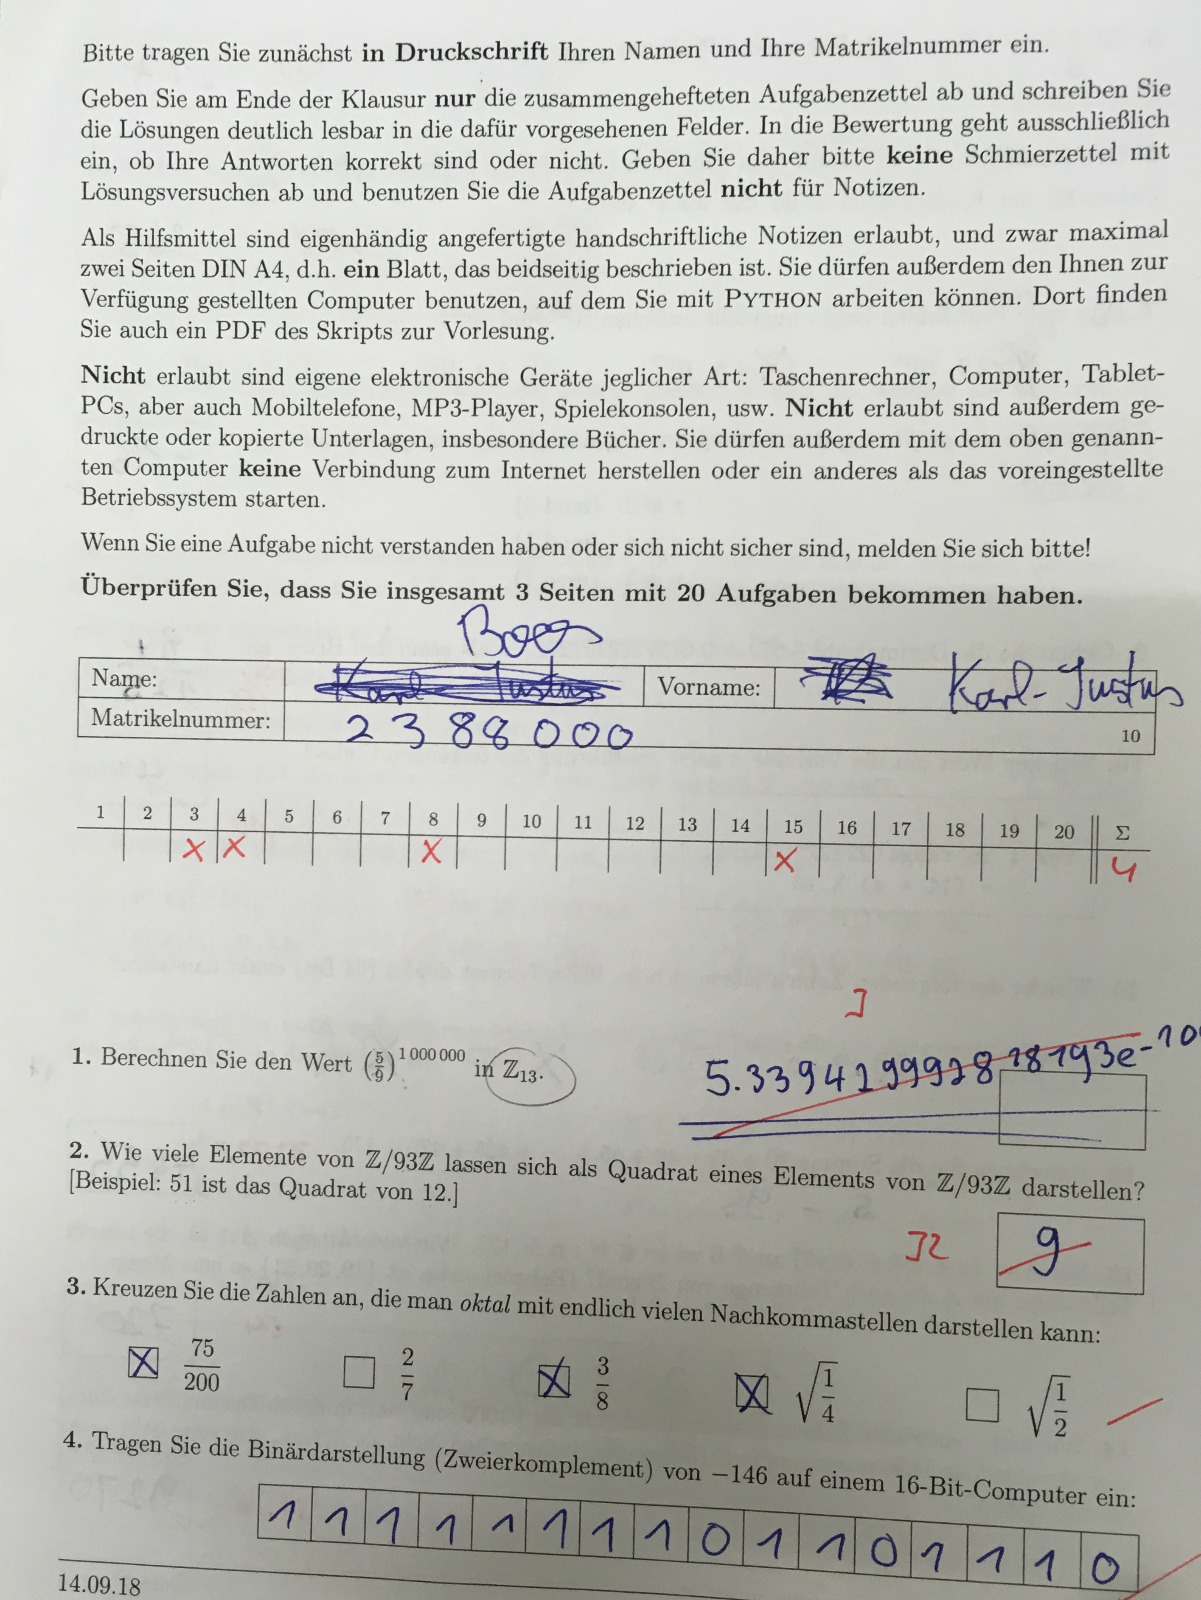 Bitte tragen Sie zunächst in Druckschrift Ihren Namen und Ihre Matrikelnummer ein.
Geben Sie am Ende der Klausur nur die zusammengehefteten Aufgabenzettel ab und schreiben Sie
die Lösungen deutlich lesbar in die dafür vorgesehenen Felder. In die Bewertung geht ausschließlich
ein, ob Ihre Antworten korrekt sind oder nicht. Geben Sie daher bitte keine Schmierzettel mit
Lösungsversuchen ab und benutzen Sie die Aufgabenzettel nicht für Notizen.
Als Hilfsmittel sind eigenhändig angefertigte handschriftliche Notizen erlaubt, und zwar maximal
zwei Seiten DIN A4, d.h. ein Blatt, das beidseitig beschrieben ist. Sie dürfen außerdem den Ihnen zur
Verfügung gestellten Computer benutzen, auf dem Sie mit PYTHON arbeiten können. Dort finden
Sie auch ein PDF des Skripts zur Vorlesung.
Nicht erlaubt sind eigene elektronische Geräte jeglicher Art: Taschenrechner, Computer, Tablet-
PCs, aber auch Mobiltelefone, MP3-Player, Spielekonsolen, usw. Nicht erlaubt sind außerdem ge-
druckte oder kopierte Unterlagen, insbesondere Bücher. Sie dürfen außerdem mit dem oben genann-
ten Computer keine Verbindung zum Internet herstellen oder ein anderes als das voreingestellte
Betriebssystem starten.
Wenn Sie eine Aufgabe nicht verstanden haben oder sich nicht sicher sind, melden Sie sich bitte!
Überprüfen Sie, dass Sie insgesamt 3 Seiten mit 20 Aufgaben bekommen haben.
Boos
Name: Karl-Justus Vorname: Karl-Justus
Matrikelnummer: 2388000 10
1 2 3 4 5 6 7 8 9 10 11 12 13 14 15 16 17 18 19 20 Σ
X X X X 4
1
1. Berechnen Sie den Wert (5/9)^1 000 000 in ℤ13. 5.339419992818193e-10
2. Wie viele Elemente von ℤ/93ℤ lassen sich als Quadrat eines Elements von ℤ/93ℤ darstellen?
[Beispiel: 51 ist das Quadrat von 12.]
32 9
3. Kreuzen Sie die Zahlen an, die man oktal mit endlich vielen Nachkommastellen darstellen kann:
X 75/200 2/7 X 3/8 X √1/4 √1/2
4. Tragen Sie die Binärdarstellung (Zweierkomplement) von −146 auf einem 16-Bit-Computer ein:
1 1 1 1 1 1 1 1 0 1 1 0 1 1 1 0
14.09.18